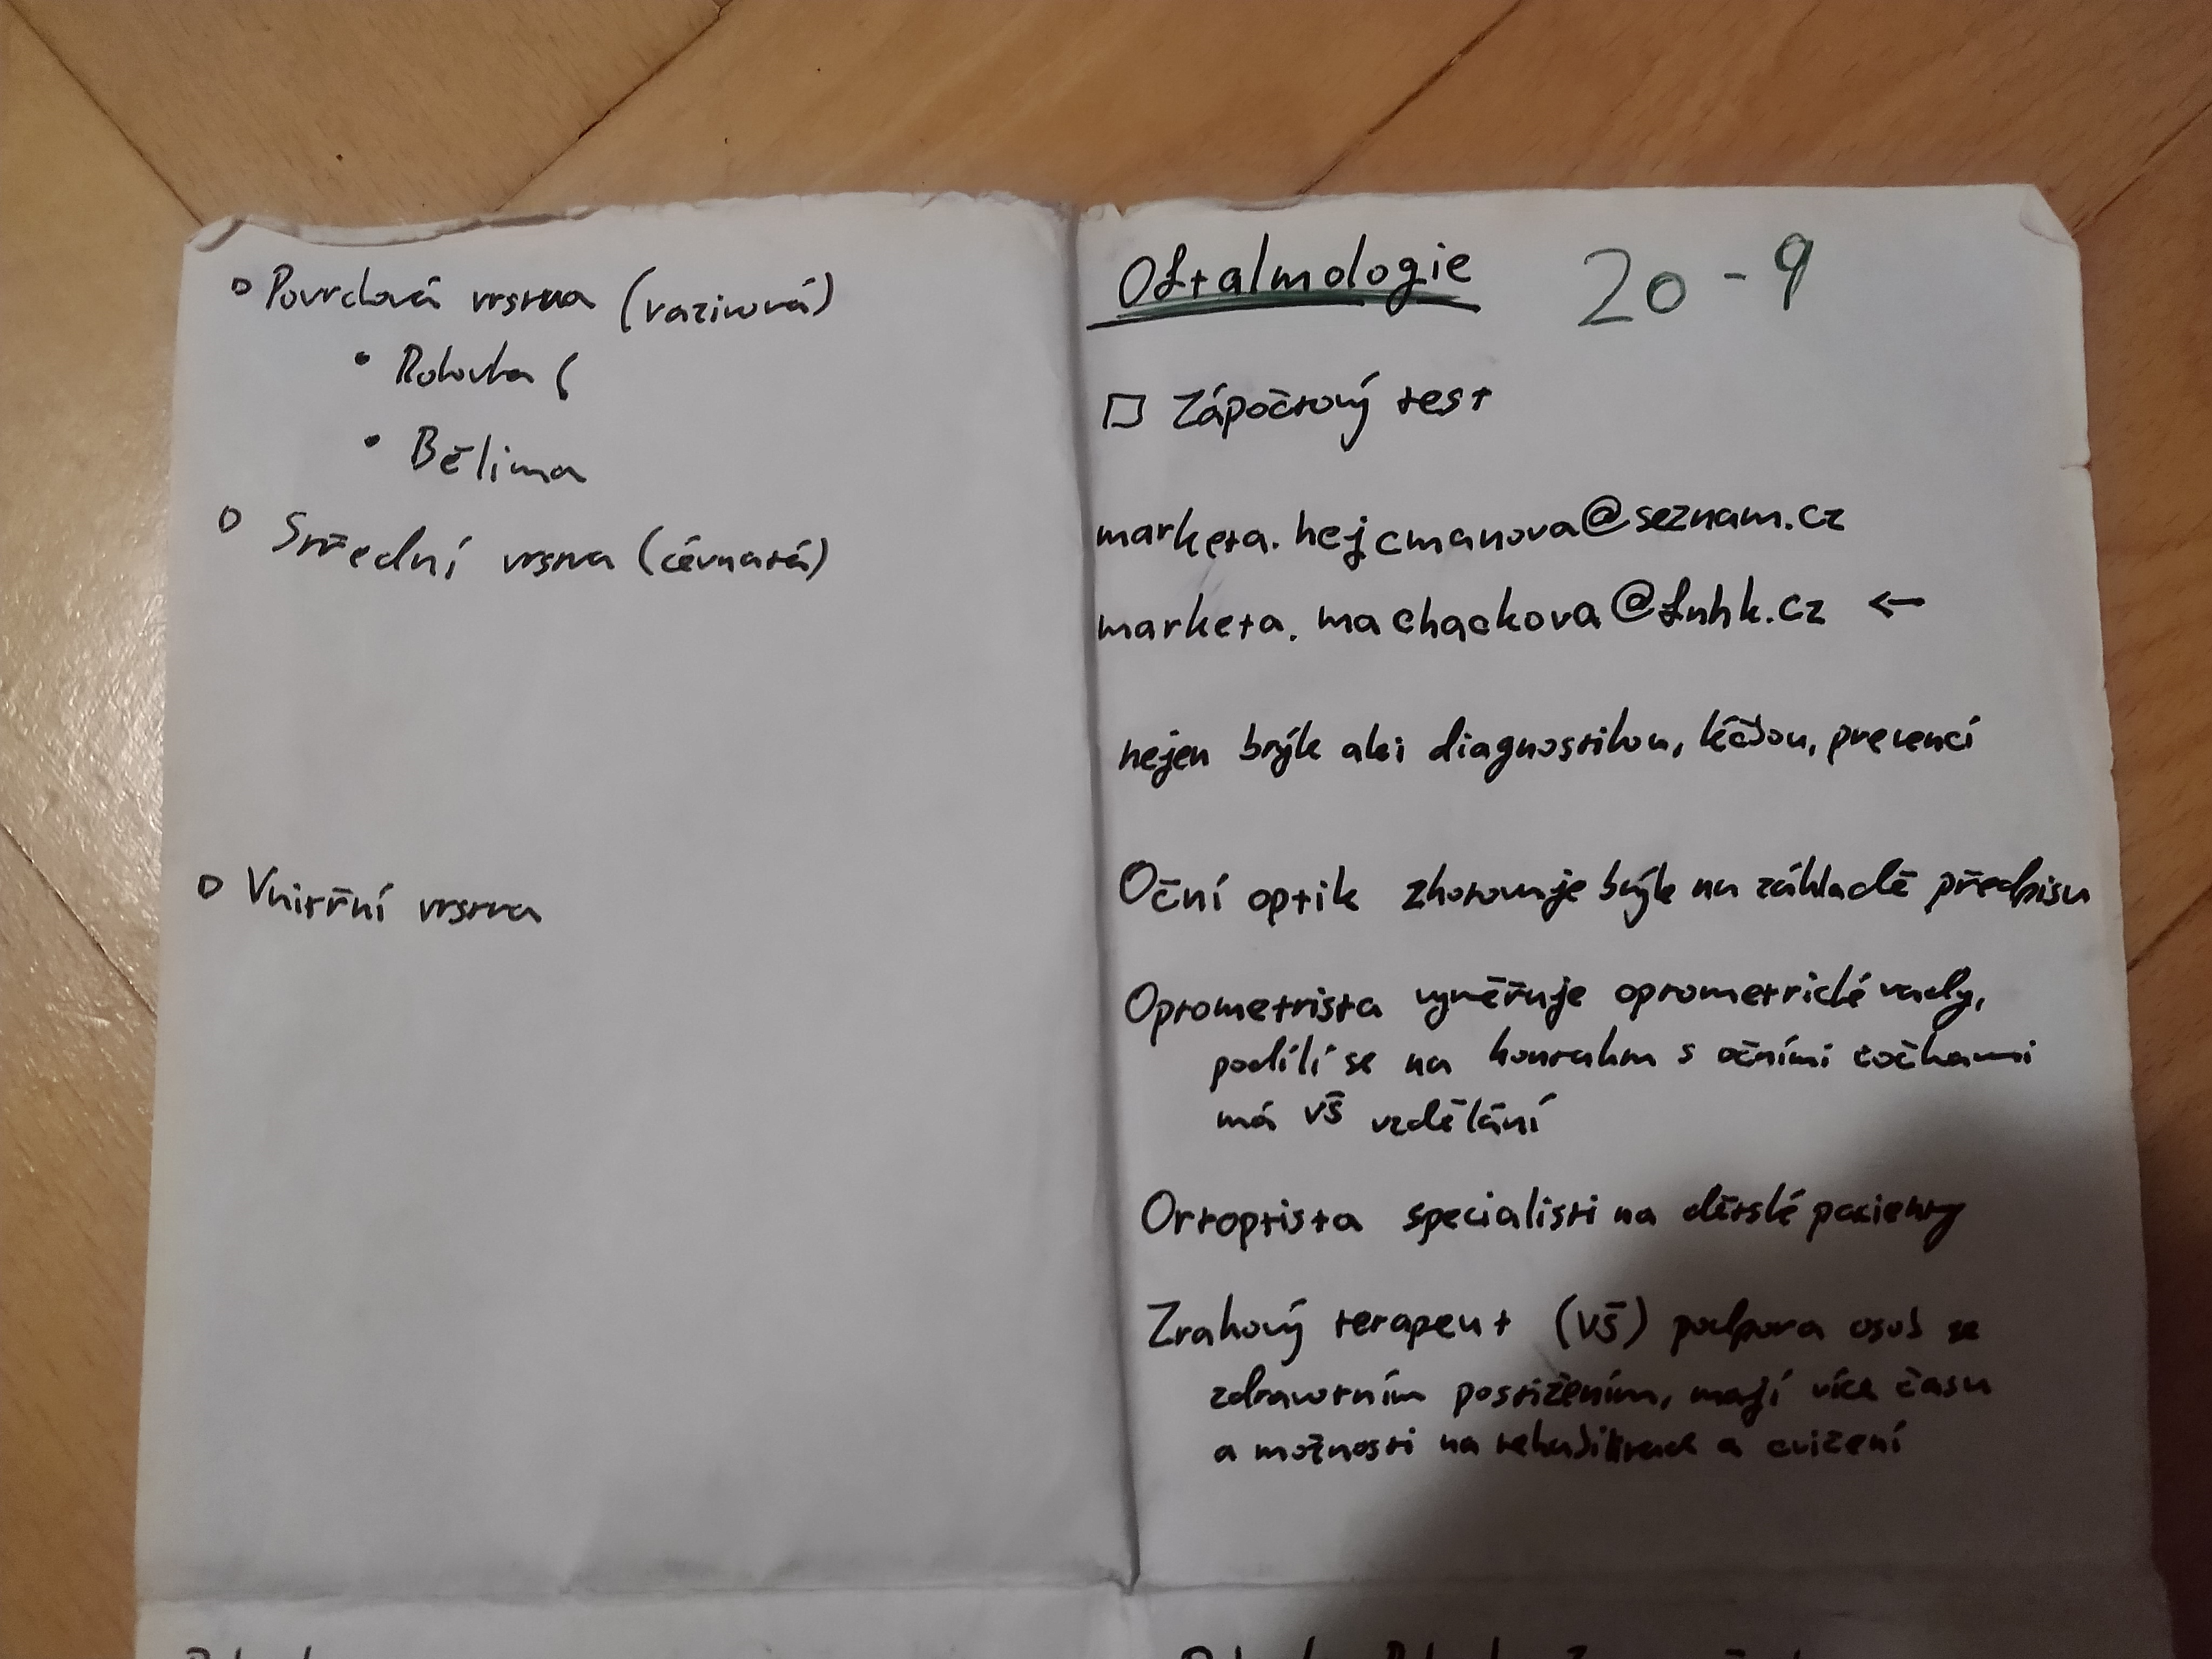 Povrchová vrstva (vazivová)
• Rohovka (
• Bělima
Střední vrstva (cévnatá)
Vnitřní vrstva
Oftalmologie 20-9
☐ Zápočtový test
marketa.hejcmanova@seznam.cz
marketa.machackova@fnhk.cz ←
nejen brýle ale i diagnostikou, léčbou, prevencí
Oční optik zhotovuje brýle na základě předpisu
Optometrista vyměřuje optometrické vady,
podílí se na kontaktu s očními čočkami
má VŠ vzdělání
Ortoptista specialisti na dětské pacienty
Zrakový terapeut (VŠ) podpora osob se
zdravotním postižením, mají více času
a možnosti na rehabilitace a cvičení